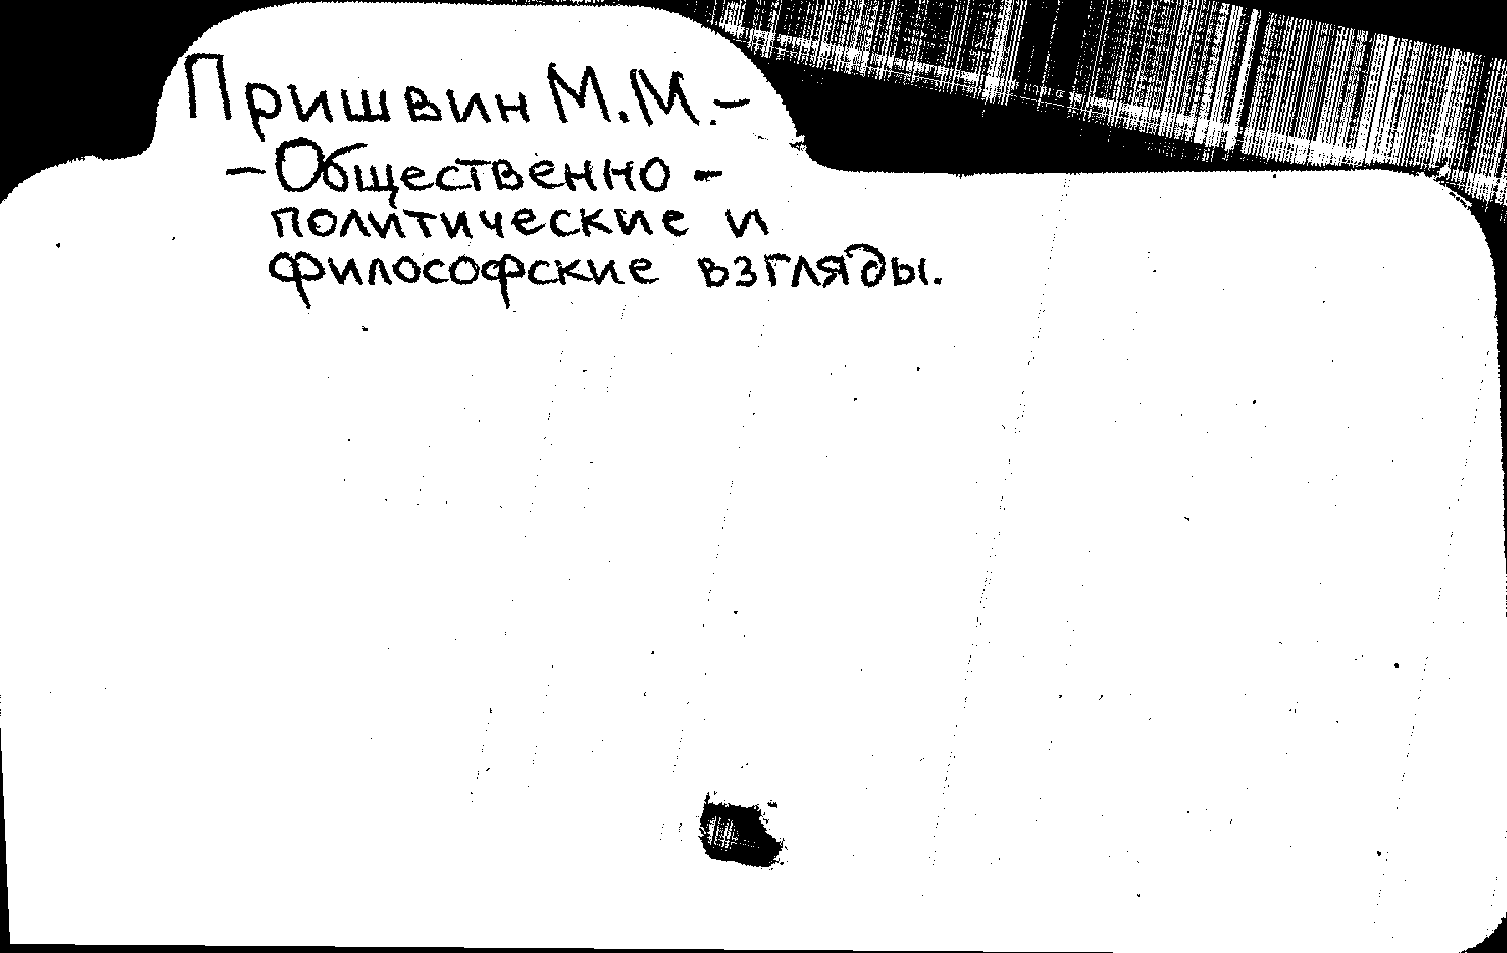 Пришвин М.М. –
– Общественно -
политические и
философские взгляды.